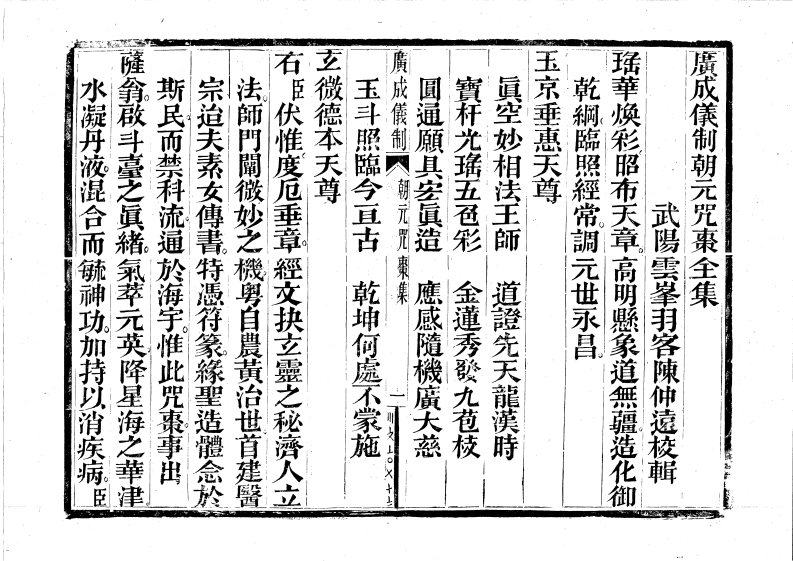 廣成儀制朝元咒棗全集
武陽雲峯羽客陳仲遠校輯
瑤華煥彩昭布天章。高明懸象道無疆。造化御
乾綱臨照經常。調元世永昌。
玉京垂惠天尊
眞空妙相法王師　道證先天龍漢時
寶杆光瑤五色彩　金蓮秀發九苞枝
圓通願具宏眞造　應感隨機廣大慈
廣成儀制　朝元咒棗集　一
玉斗照臨今亘古　乾坤何處不蒙施
玄微德本天尊
右臣伏惟度厄垂章。經文抉玄靈之秘濟人立
法。師門闡微妙之機粵自農黃治世首建醫
宗迨夫素女傳書。特憑符篆緣聖造體念於
斯民而禁科流通於海宇。惟此咒棗。事出
薩翁。啟斗臺之眞緒。氣萃元英降星海之華津
水凝丹液。混合而毓神功。加持以消疾病。臣